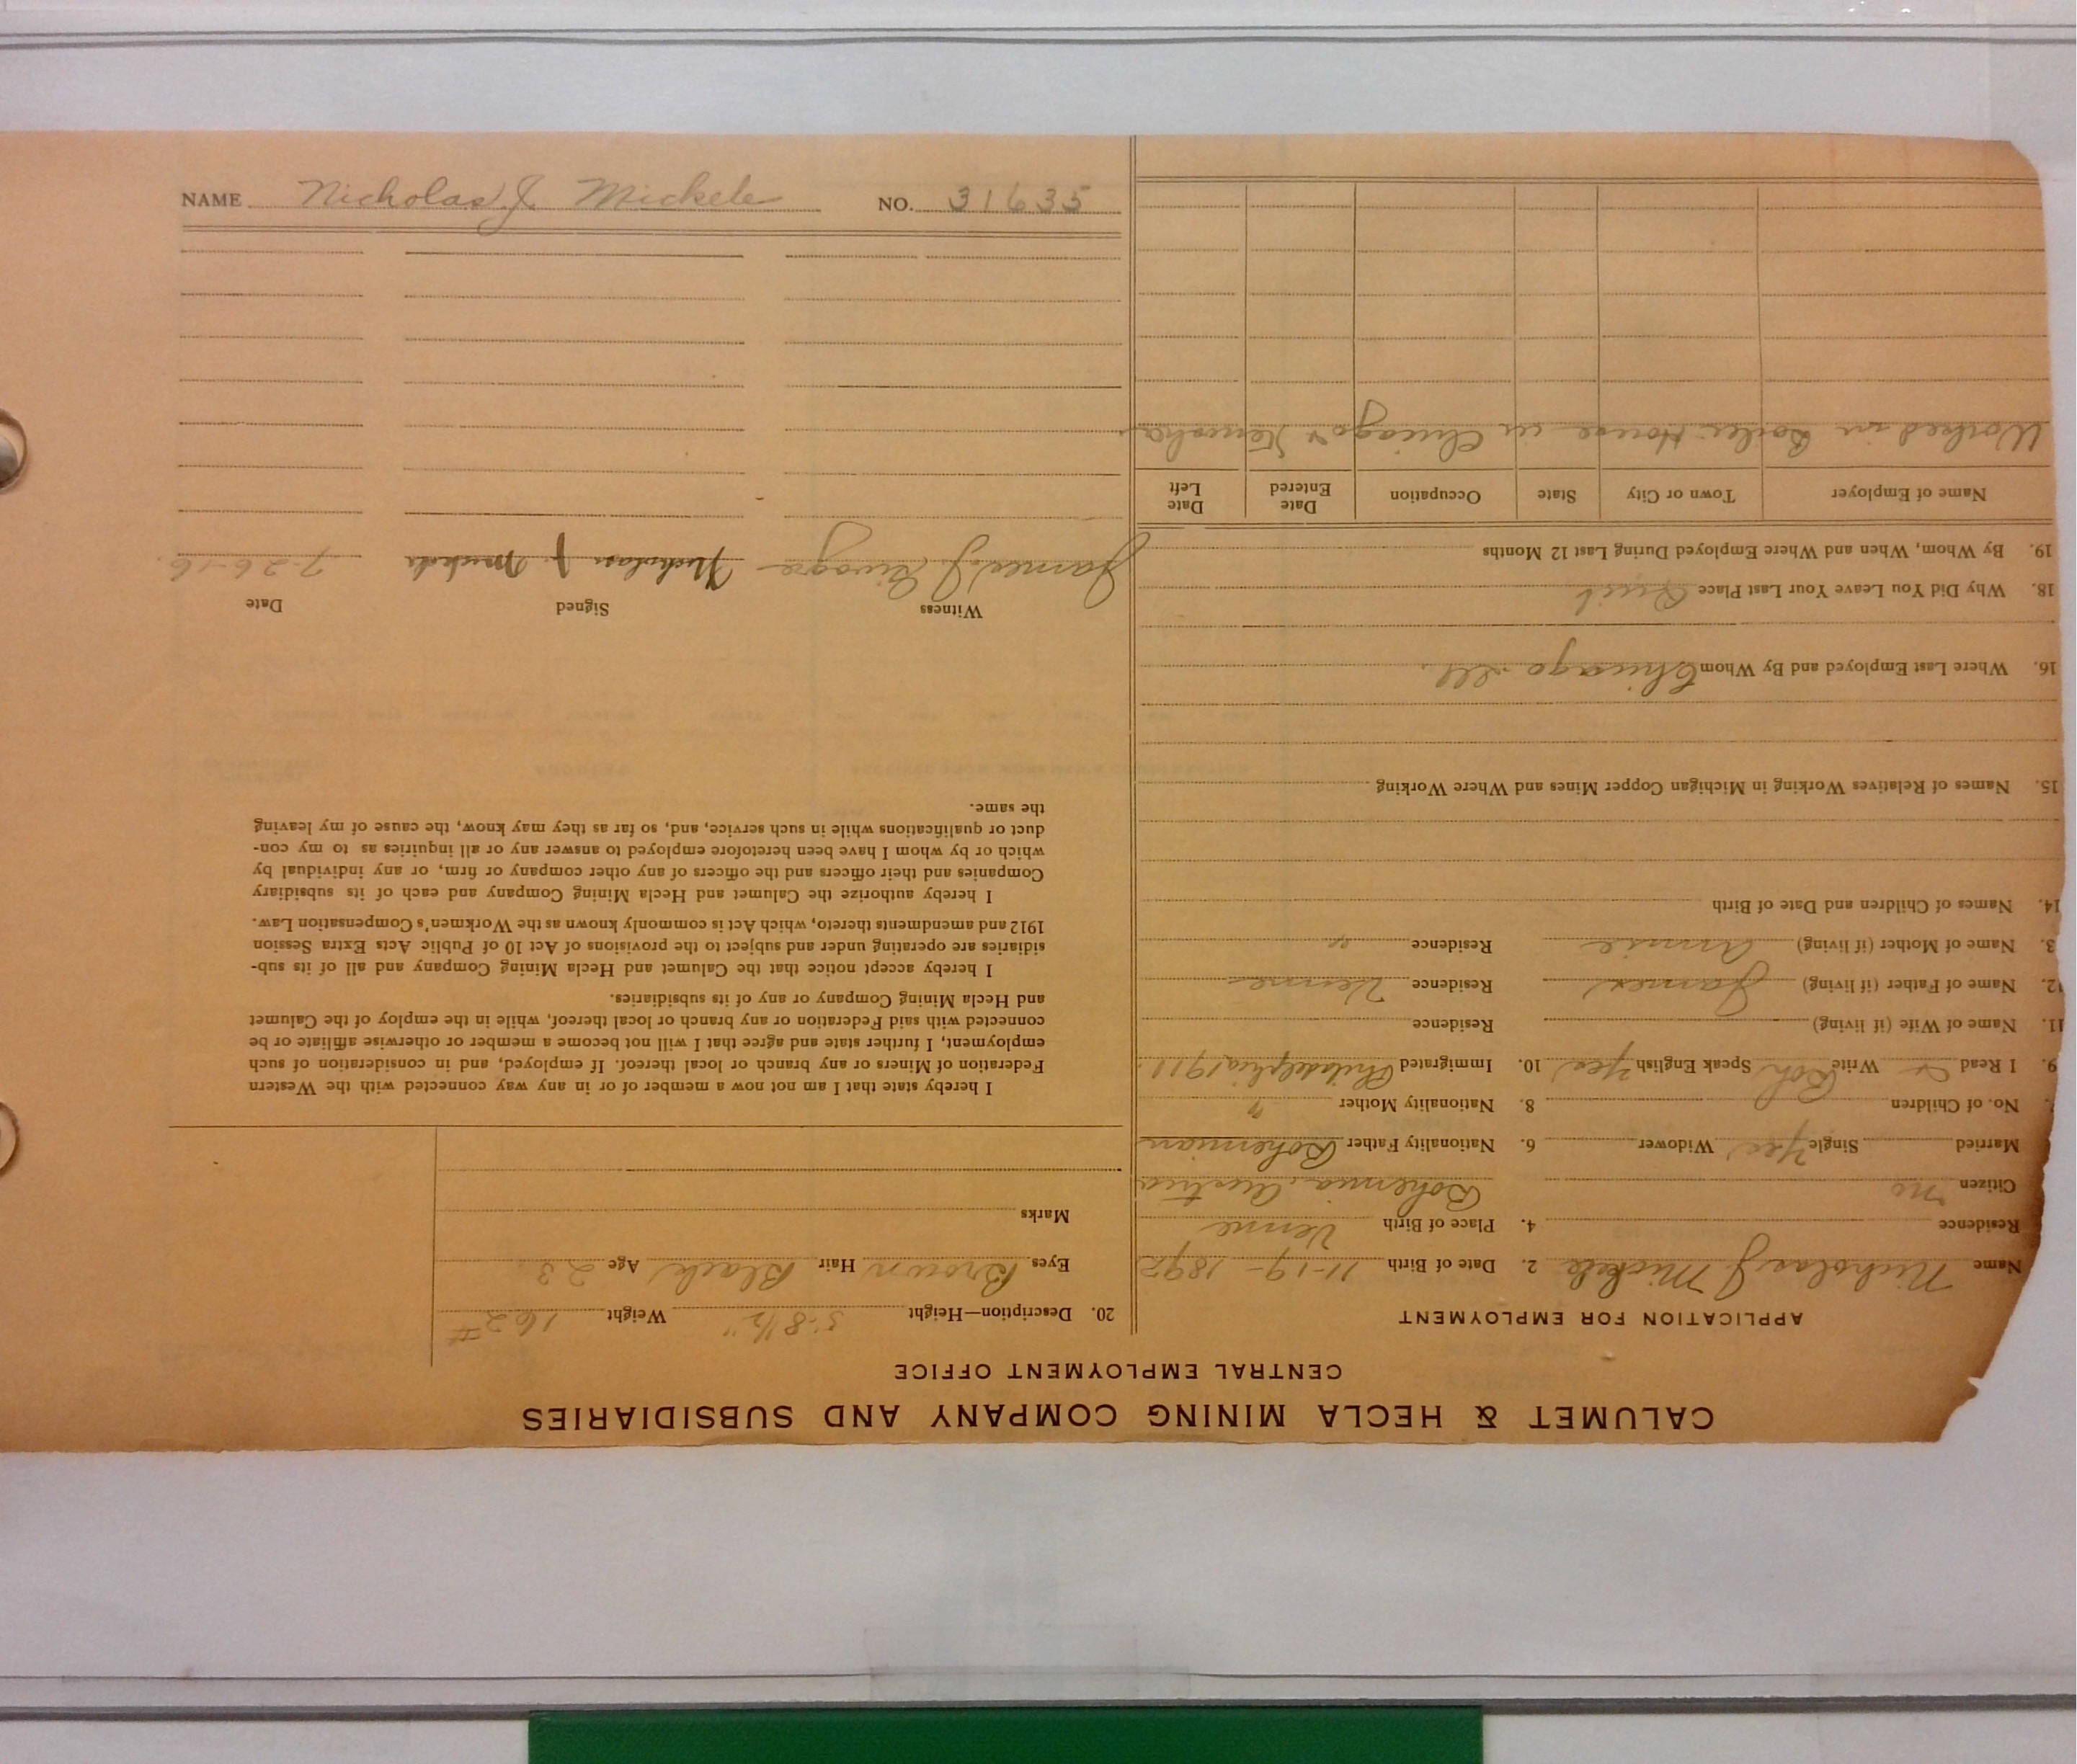 CALUMET & HECLA MINING COMPANY AND SUBSIDIARIES
CENTRAL EMPLOYMENT OFFICE
APPLICATION FOR EMPLOYMENT
Name Nicholas J. Mickele 2. Date of Birth 11-19-1892
Residence 4. Place of Birth
Citizen no Bohemia, Austria
Married Single Yes Widower 6. Nationality Father Bohemian
No. of Children 8. Nationality Mother "
9. I Read & Write Boh Speak English Yes 10. Immigrated Philadelphia 1911.
11. Name of Wife (if living) Residence
12. Name of Father (if living) James Residence
3. Name of Mother (if living) Annie Residence "
14. Names of Children and Date of Birth
15. Names of Relatives Working in Michigan Copper Mines and Where Working
16. Where Last Employed and By Whom Chicago Ill.
18. Why Did You Leave Your Last Place Quit
19. By Whom, When and Where Employed During Last 12 Months
Name of Employer Town or City State Occupation Date Entered Date Left
Worked in Boiler House in Chicago & Kenosha.
20. Description—Height 5-8½" Weight 162#
Eyes Brown Hair Black Age 23
Marks
I hereby state that I am not now a member of or in any way connected with the Western
Federation of Miners or any branch or local thereof. If employed, and in consideration of such
employment, I further state and agree that I will not become a member or otherwise affiliate or be
connected with said Federation or any branch or local thereof, while in the employ of the Calumet
and Hecla Mining Company or any of its subsidiaries.
I hereby accept notice that the Calumet and Hecla Mining Company and all of its sub-
sidiaries are operating under and subject to the provisions of Act 10 of Public Acts Extra Session
1912 and amendments thereto, which Act is commonly known as the Workmen's Compensation Law.
I hereby authorize the Calumet and Hecla Mining Company and each of its subsidiary
Companies and their officers and the officers of any other company or firm, or any individual by
which or by whom I have been heretofore employed to answer any or all inquiries as to my con-
duct or qualifications while in such service, and, so far as they may know, the cause of my leaving
the same.
Witness Signed Date
James J. Nicholas J. Mickele 7-26-16.
NAME Nicholas J. Mickele NO. 31635